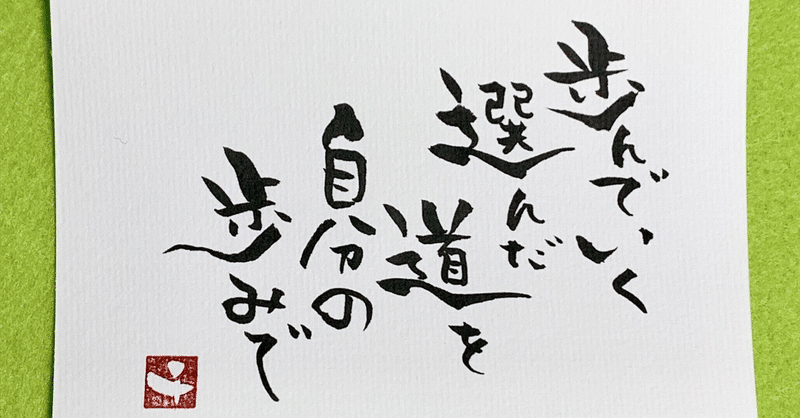 歩んでいく
選んだ
道を
自分の
歩みで